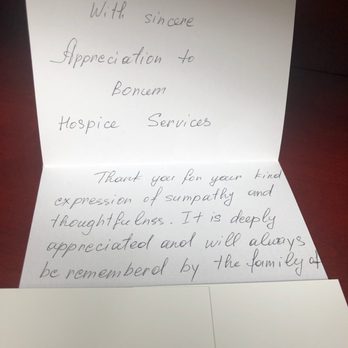 With sincere
Appreciation to
Bonum
Hospice Services
Thank you for your kind
expression of sumpathy and
thoughtfulnss. It is deeply
appreciated and will always
be rememberd by the family of